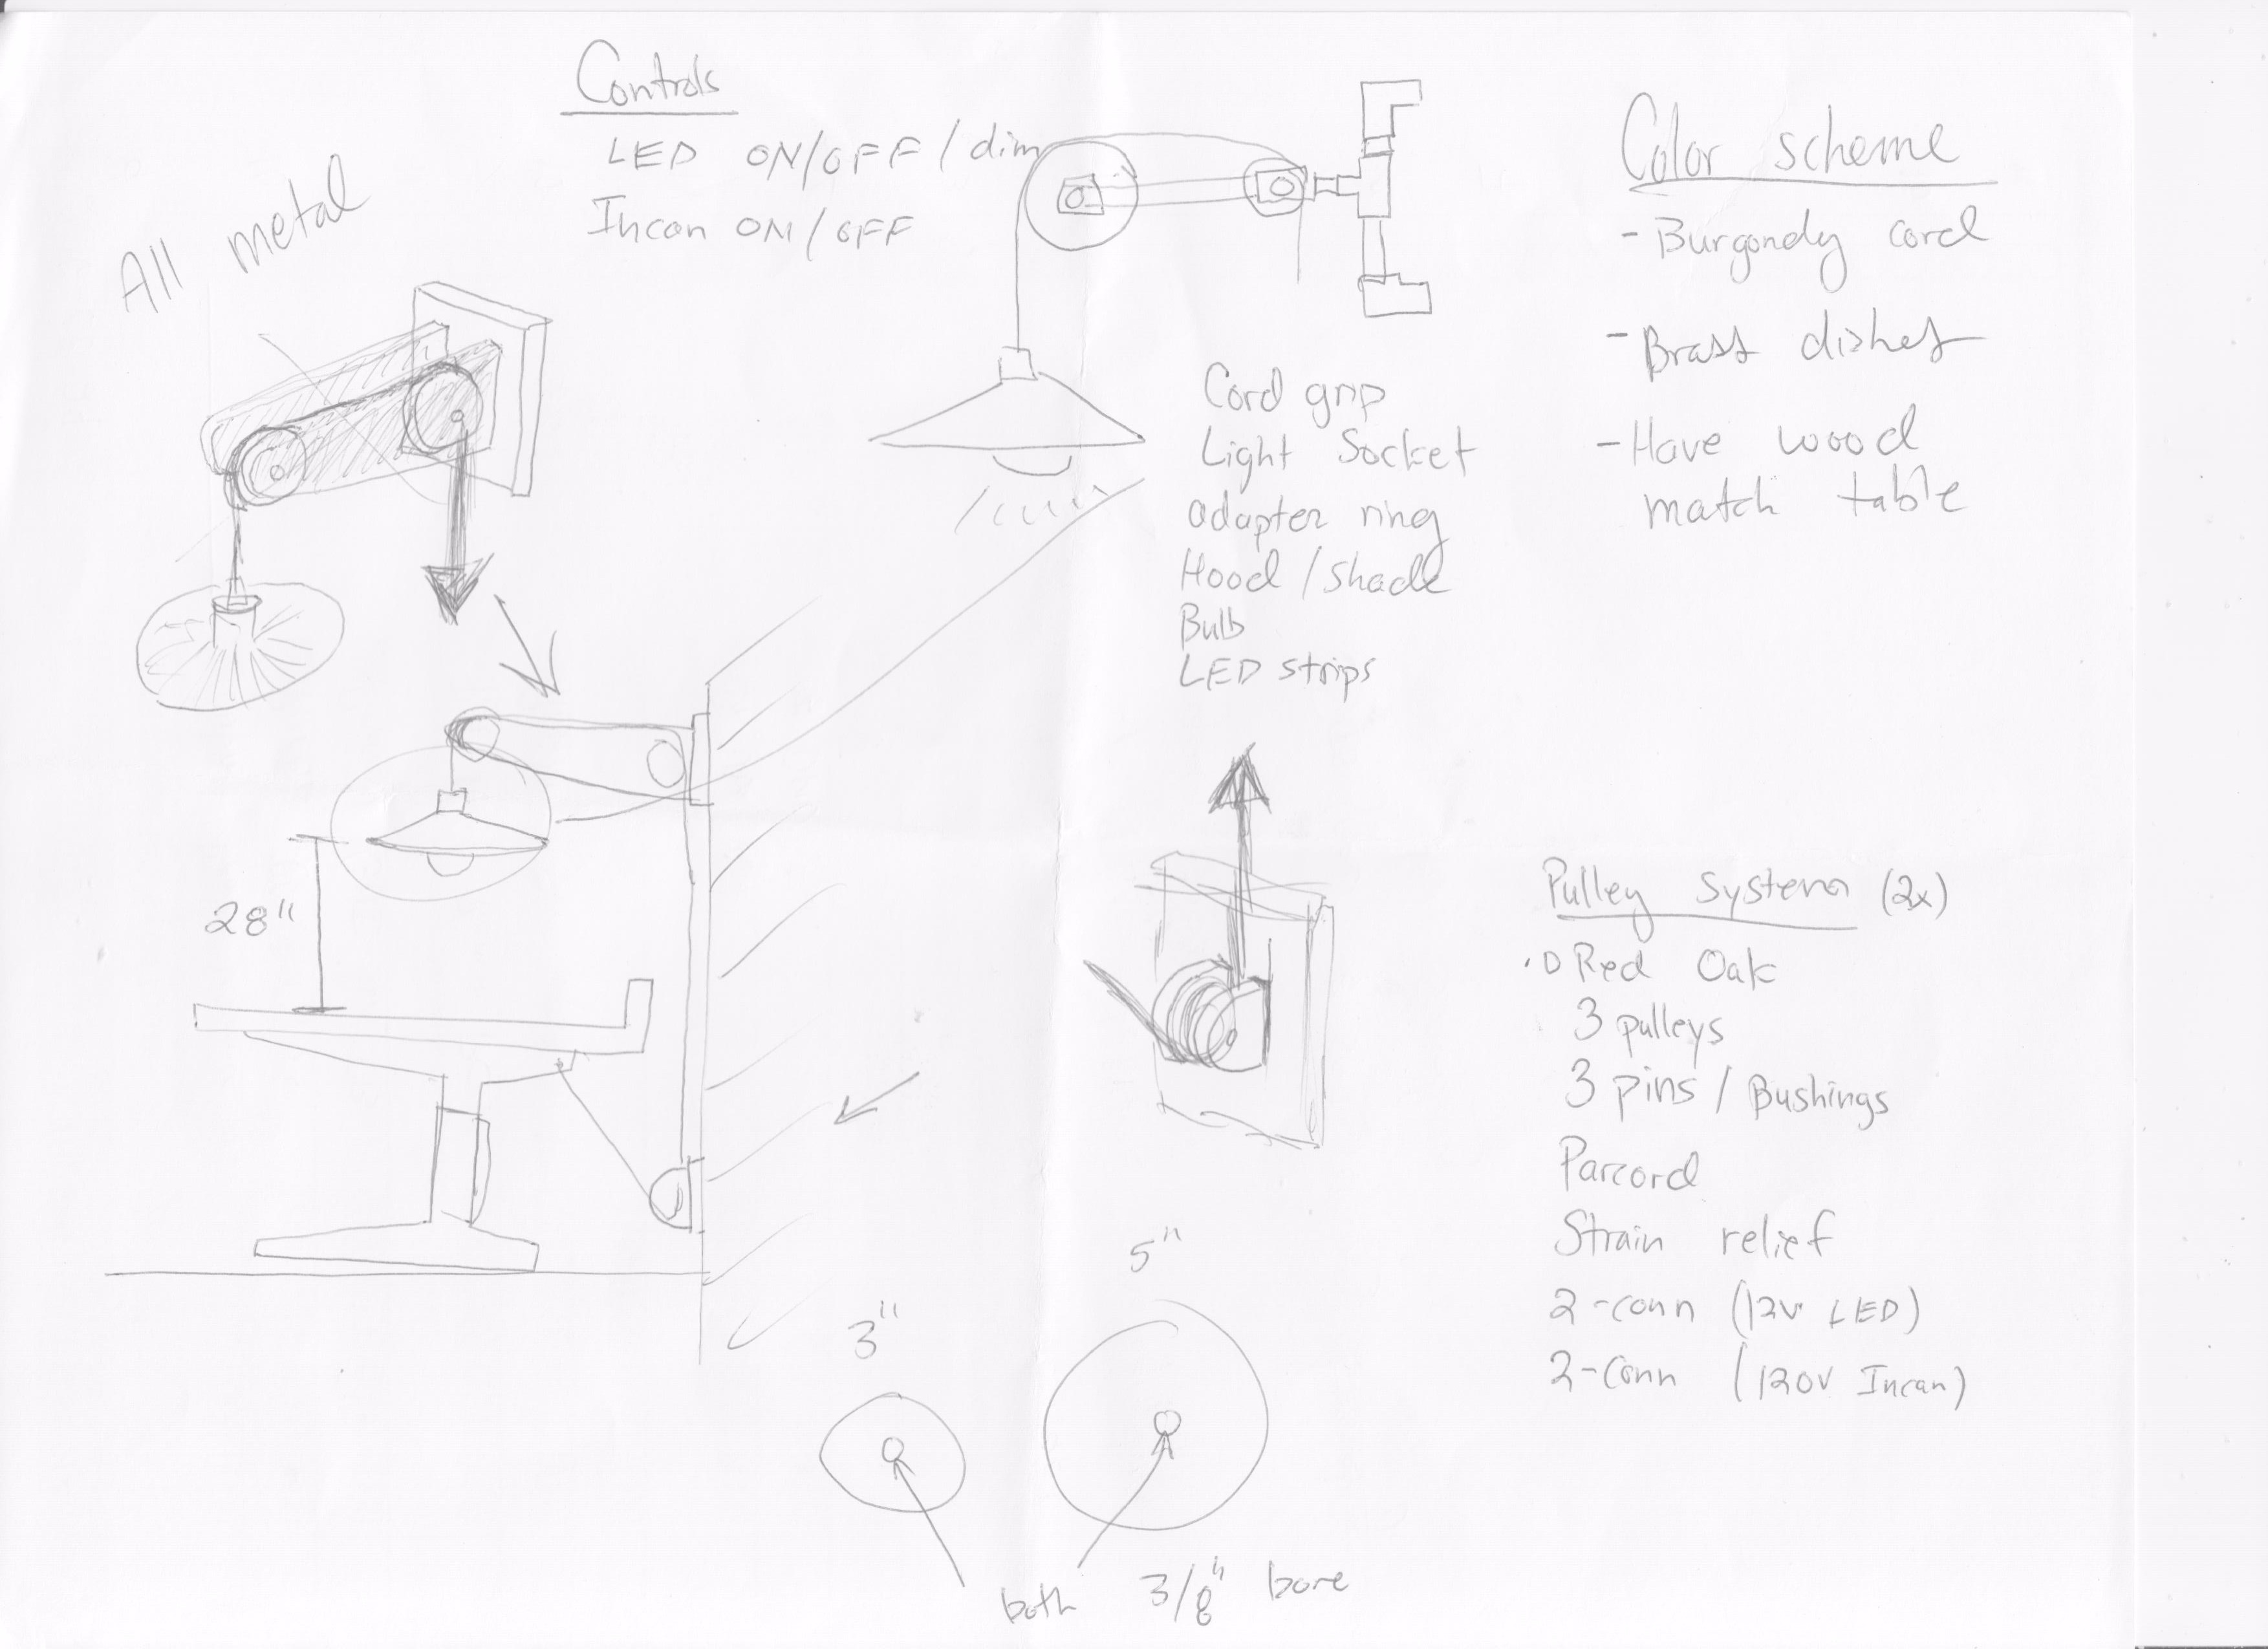 Controls
LED ON/OFF/dim
Incan ON/OFF
All metal
Color scheme
- Burgondy cord
- Brass dishes
- Have wood
match table
Cord grip
Light Socket
adapter ring
Hood/shade
Bulb
LED strips
28"
Pulley System (2x)
Red Oak
3 pulleys
3 pins/Bushings
Parcord
Strain relief
2-conn (12V LED)
2-conn (120V Incan)
5"
3"
both 3/8" bore